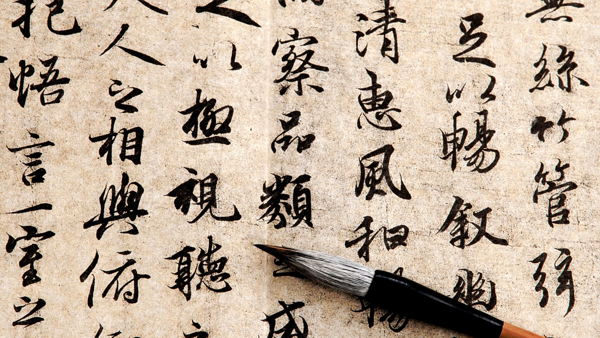 無絲竹管弦
足以暢叙幽
清惠風和暢
察品類之盛
以極視聽
人之相與俯
抱悟言一室之